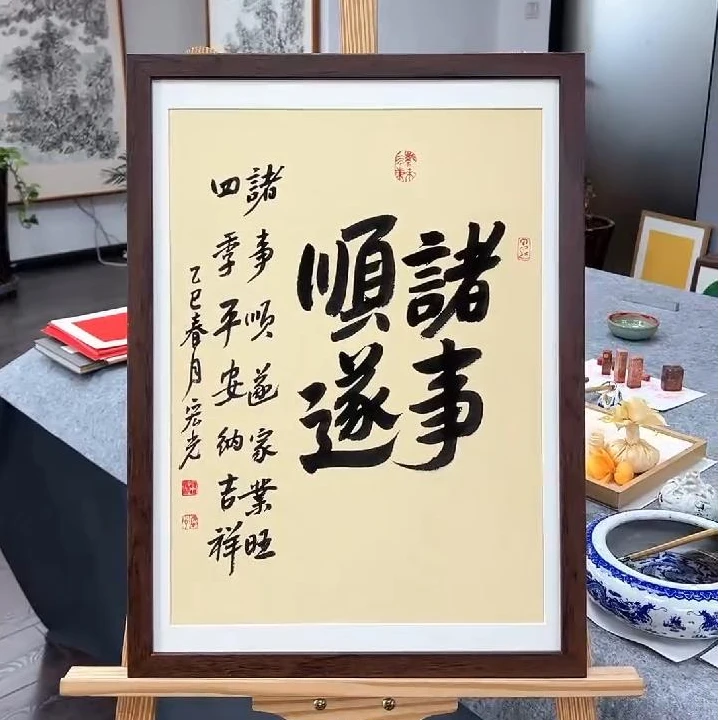 諸事
順遂
諸事顺遂家業旺
四季平安纳吉祥
乙巳春月宏光